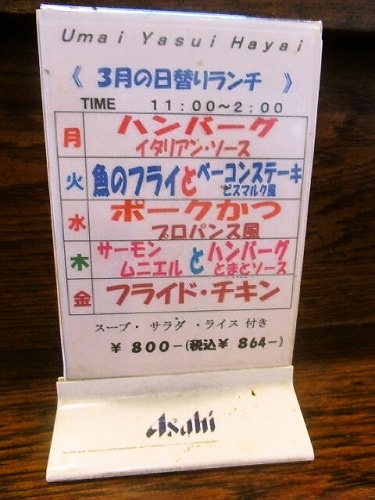 Umai Yasui Hayai
《 3月の日替りランチ 》
TIME 11:00～2:00
月 ハンバーグ
イタリアン・ソース
火 魚のフライとベーコンステーキ
ビスマルク風
水 ポークかつ
プロバンス風
木 サーモンムニエルとハンバーグ
とまとソース
金 フライド・チキン
スープ・サラダ・ライス付き
¥800-(税込¥864-)
Asahi